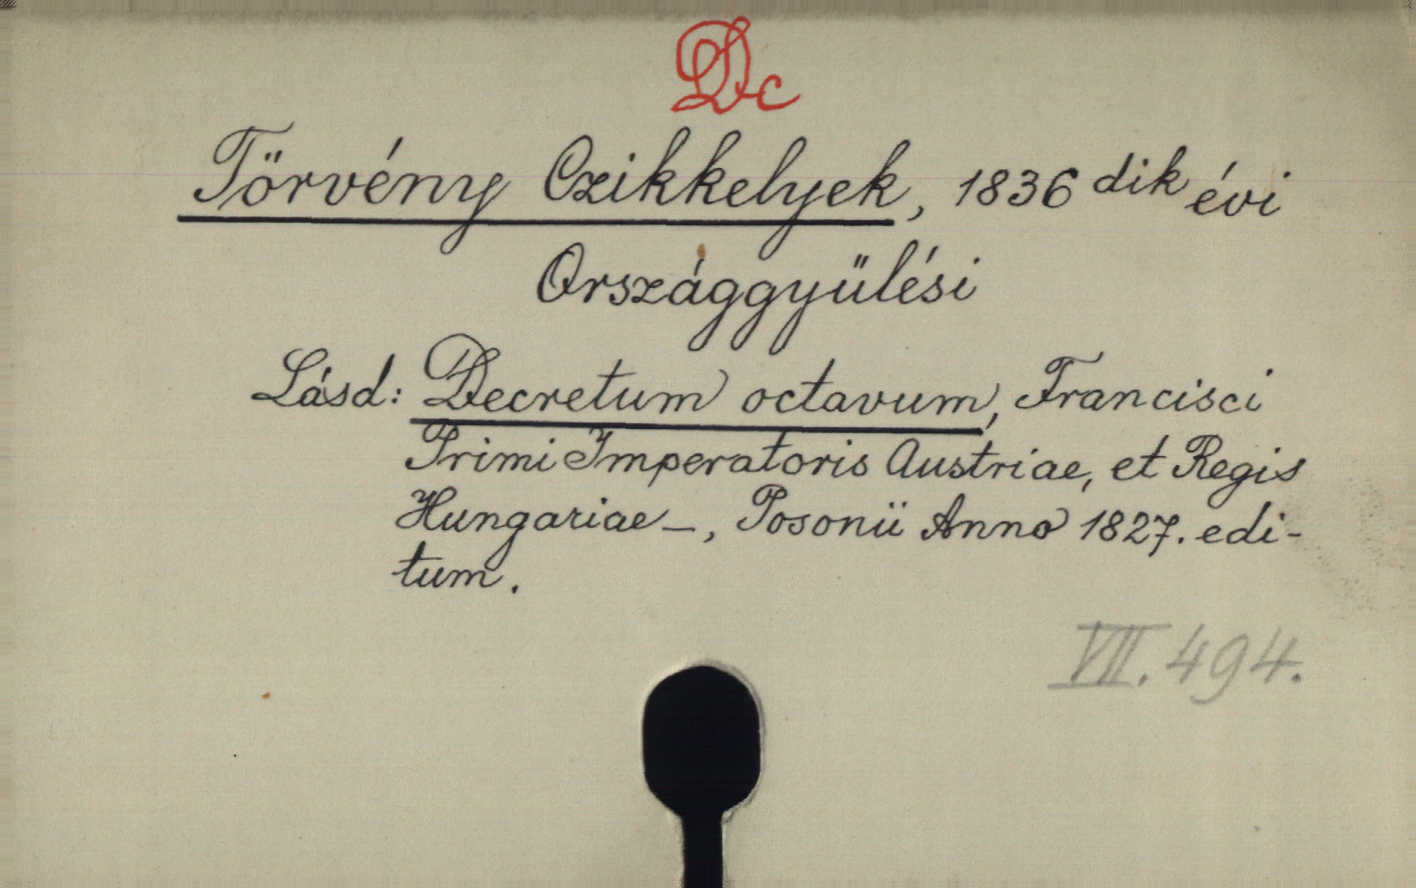 Dc
Törvény Czikkelyek, 1836 dik évi
Országgyülési
Lásd: Decretum octavum, Francisci
Primi Imperatoris Austriae, et Regis
Hungariae –, Posonii Anno 1827. edi-
tum.
VII. 494.